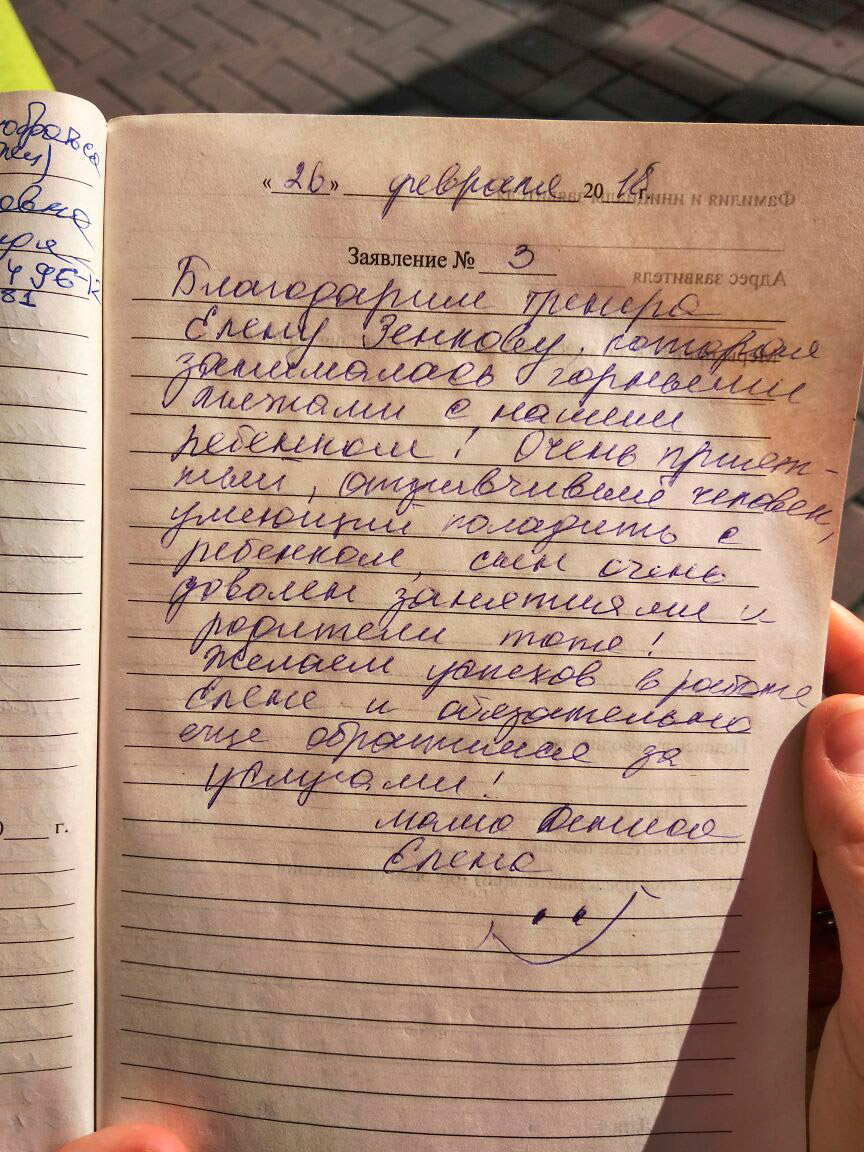 « 26 » февраля 20 18 г.
Заявление № 3
Благодарим тренера
Елену Зенкову, которая
занималась горными
лыжами с нашим
ребенком! Очень прият-
ный, отзывчивый человек,
умеющий поладить с
ребенком, сын очень
доволен занятиями и
родители тоже!
Желаем успехов в работе
Елене и обязательно
еще обратимся за
услугами!
мама
Елена
496
81
г.
Фамилия и инициалы заявителя
Адрес заявителя